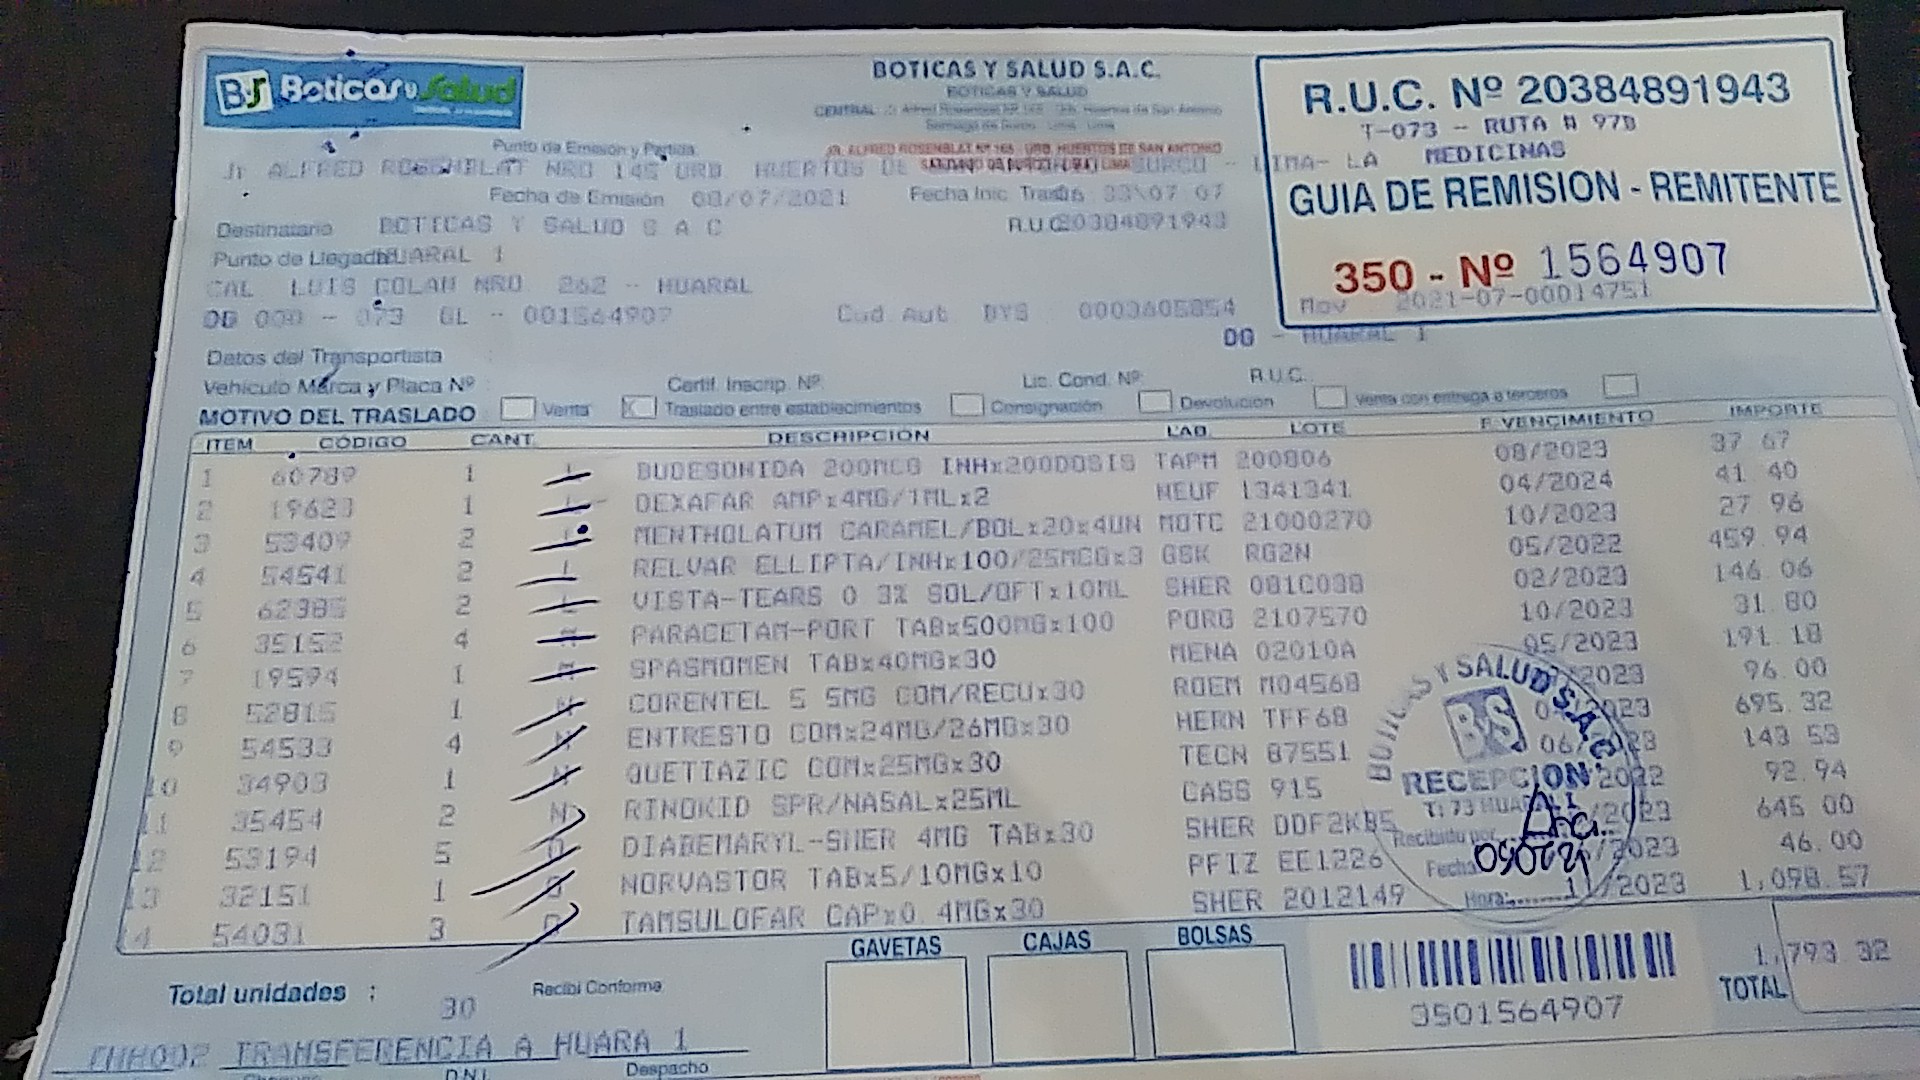 BS Boticas y Salud
BOTICAS Y SALUD S.A.C.
BOTICAS Y SALUD
R.U.C. Nº 20384891943
T-073 - RUTA # 97B
MEDICINAS
GUIA DE REMISION - REMITENTE
350 - Nº 1564907
Mov 2021-07-00014751
Punto de Emision y Partida
JR. ALFRED ROSENBLAT Nº 165 - URB. HUERTOS DE SAN ANTONIO
Jr ALFRED ROSENBLAT NRO 145 URB. HUERTOS DE SURCO - LIMA- LA
Fecha de Emisión 08/07/2021 Fecha Inic. Traslado
Destinatario BOTICAS Y SALUD S A C R.U.C 20384891943
Punto de Llegada HUARAL 1
CAL LUIS COLAN NRO 262 - HUARAL
GL - 001564907 Cod Aut DYS 0003605854
DG - HUARAL 1
Datos del Transportista
Vehículo Marca y Placa Nº Certif. Inscrip. Nº Lic. Cond. Nº R.U.C.
MOTIVO DEL TRASLADO Venta X Traslado entre establecimientos Consignación Devolución Venta con entrega a terceros
ITEM CÓDIGO CANT. DESCRIPCIÓN LAB. LOTE F. VENCIMIENTO IMPORTE
1 60789 1 BUDESONIDA 200MCG INHx200DOSIS TAPM 200806 08/2023 37 67
2 19623 1 DEXAFAR AMPx4MG/1MLx2 NEUF 1341341 04/2024 41 40
3 53409 2 MENTHOLATUM CARAMEL/BOLx20x4UN MOTC 21000270 10/2023 27 96
4 54541 2 RELVAR ELLIPTA/INHx100/25MCGx3 GSK RG2N 05/2022 459.94
5 62385 2 VISTA-TEARS 0 3% SOL/OFTx10ML SHER 081C038 02/2023 146.06
6 35152 4 PARACETAM-PORT TABx500MGx100 PORG 2107570 10/2023 31.80
7 19594 1 SPASMOMEN TABx40MGx30 MENA 02010A 05/2023 191.18
8 52815 1 CORENTEL 5 5MG COM/RECUx30 ROEM M04568 96.00
9 54533 4 ENTRESTO COMx24MG/26MGx30 HERN TFF68 695.32
10 34903 1 QUETIAZIC COMx25MGx30 TECN 87551 06/2023 143 53
11 35454 2 RINOKID SPR/NASALx25ML CASS 915 92.94
12 53194 5 DIABEMARYL-SHER 4MG TABx30 SHER DDF2KB5 645 00
13 32151 1 NORVASTOR TABx5/10MGx10 PFIZ EE1226 46.00
14 54031 3 TAMSULOFAR CAPx0. 4MGx30 SHER 2012149 11/2023 1,098.57
BOTICAS Y SALUD S.A.C.
BS
RECEPCION
T: 73 HUARAL I
Recibido por
Fecha:
Hora:
Total unidades : 30
Recibi Conforme
GAVETAS CAJAS BOLSAS
3501564907
TOTAL
TRANSFERENCIA A HUARA 1
D.N.I. Despacho